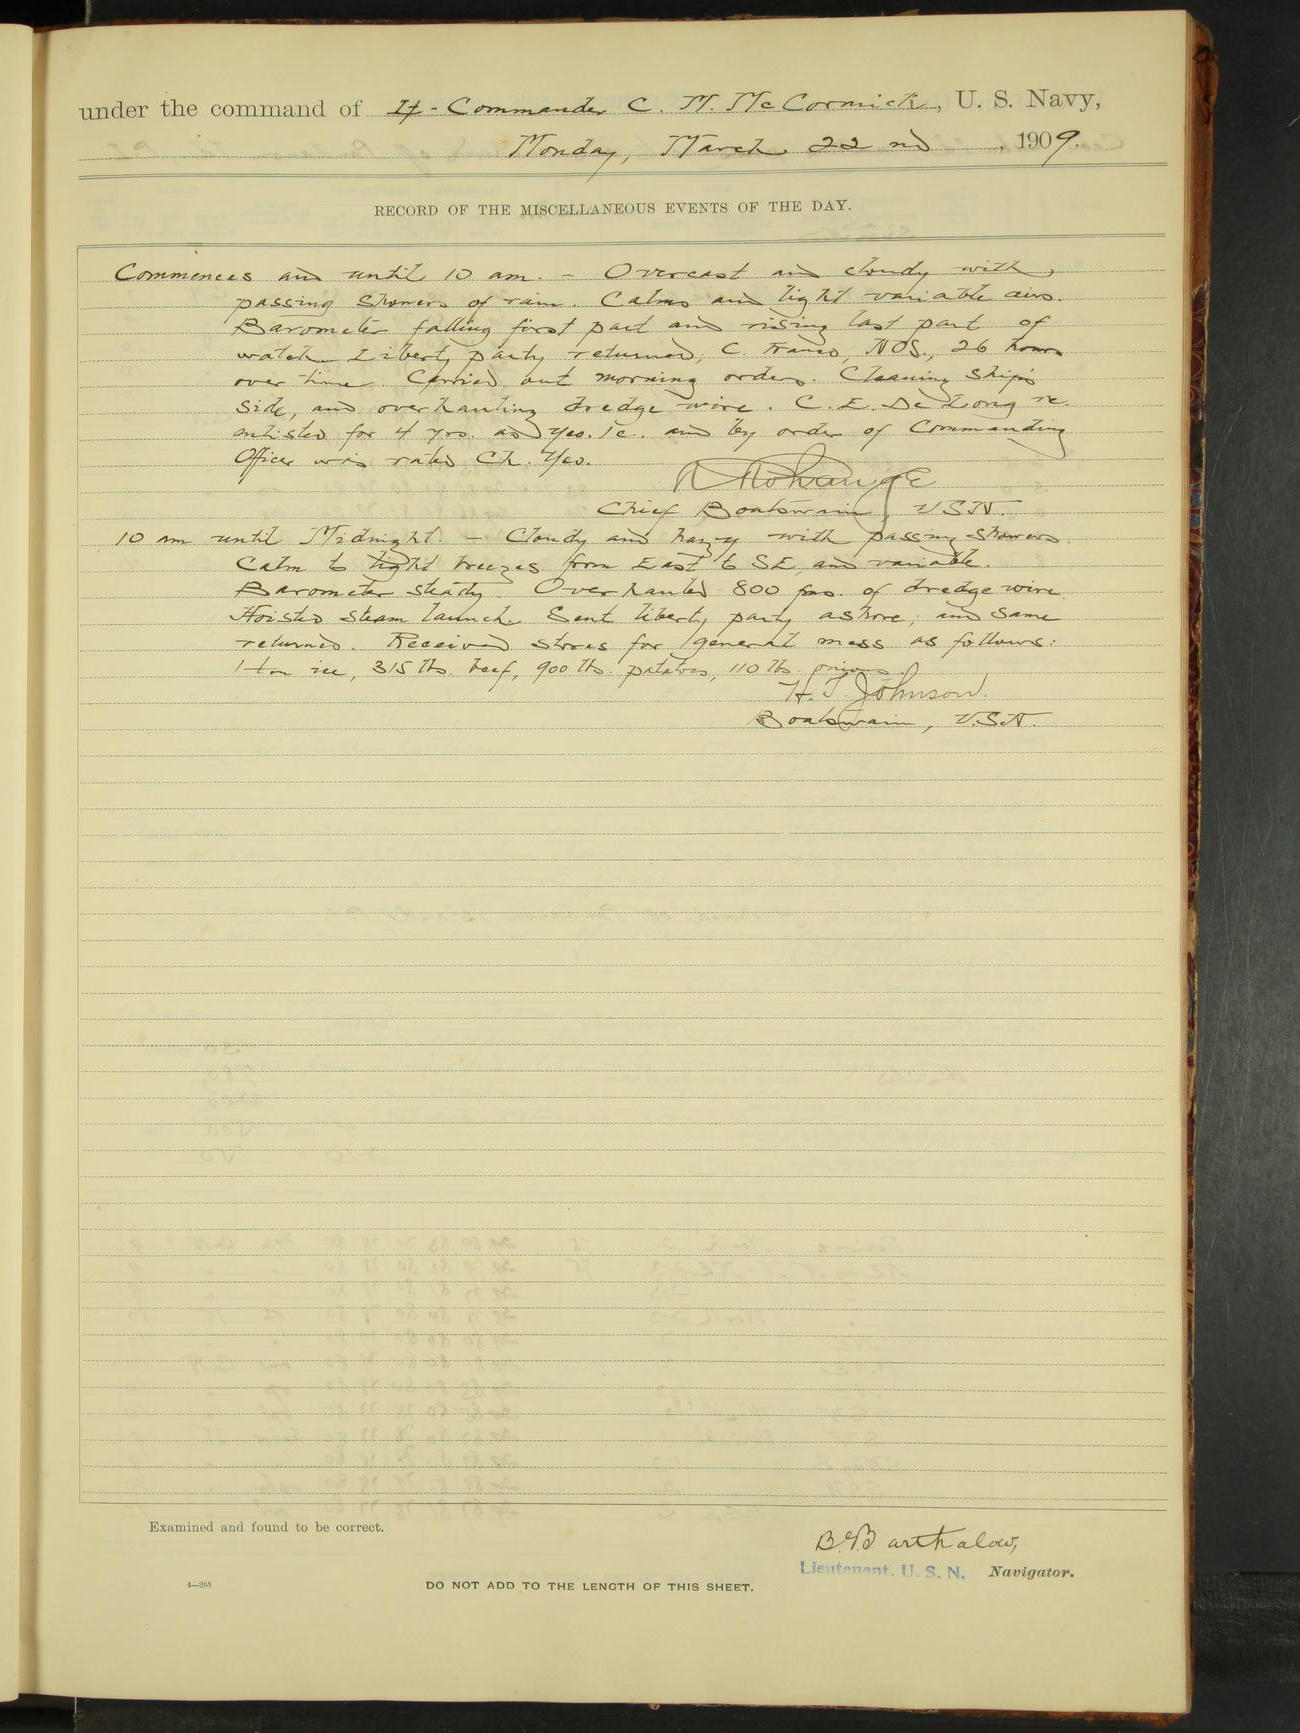 under the command of Lt-Commander C. M. McCormick, U. S. Navy,
Monday, March 22nd, 1909.
RECORD OF THE MISCELLANEOUS EVENTS OF THE DAY.
Commences and until 10 am. - Overcast and cloudy with
passing showers of rain. Calms and light variable airs.
Barometer falling first part and rising last part of
watch. Liberty party returned, C. Franco, 26 hours
over time. Carried out morning orders. Cleaning ship's
side, and overhauling dredge wire. C. E. De Long re-
enlisted for 4 yrs. as Yeo. 1c. and by order of Commanding
Officer was rated Ch. Yeo.
Chief Boatswain, USN.
10 am until Midnight. - Cloudy and hazy with passing showers.
Calm to light breezes from East to SE, and variable.
Barometer steady. Overhauled 800 fms. of dredge wire.
Hoisted steam launch. Sent liberty party ashore, and same
returned. Received stores for general mess as follows:
1 ton ice, 315 lbs. beef, 900 lbs. potatoes, 110 lbs. onions.
H. T. Johnson.
Boatswain, U.S.N.
Examined and found to be correct.
B. B. Barthalow,
Lieutenant. U. S. N. Navigator.
4—265
DO NOT ADD TO THE LENGTH OF THIS SHEET.